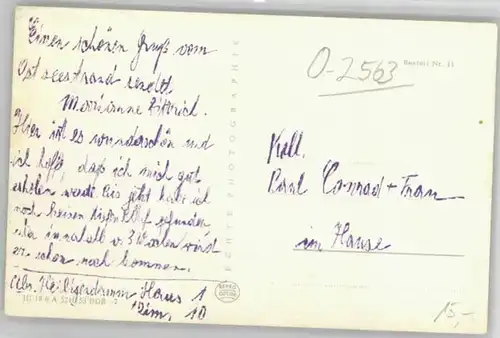 Einen schönen Gruß vom
Ostseestrand sendet
Marianne
Hier ist es wunderschön und
ich hoffe, daß ich mich gut
erholen werde. Bis jetzt habe ich
noch keinen gefunden
innerhalb v. 3 Wochen wird
er schon noch kommen.
Abs. Heiligendamm Haus 1
Zim. 10
ECHTE PHOTOGRAPHIE
O-2563
Bestell Nr. 11
Koll.
Paul Conrad + Frau
im Hause
15,-